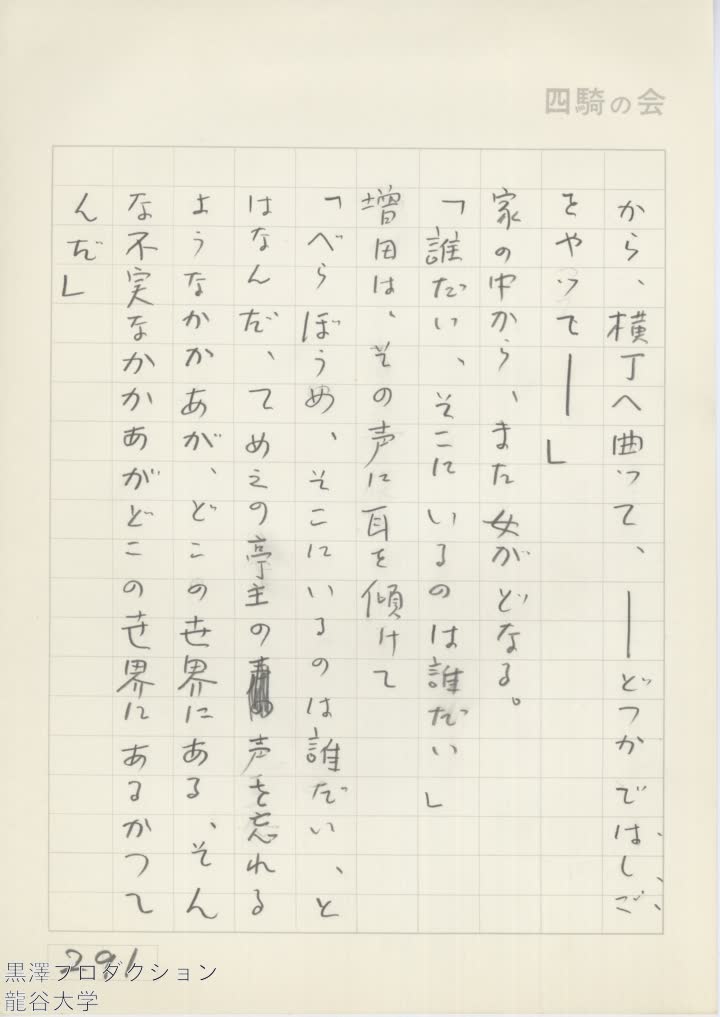 四騎の会
から、横丁へ曲って、――どっかではしご
をやって――」
家の中から、また女がどなる。
「誰だい、そこにいるのは誰だい」
増田は、その声に耳を傾けて
「べらぼうめ、そこにいるのは誰だい、と
はなんだ、てめえの亭主の声を忘れる
ようなかかあが、どこの世界にある、そん
な不実なかかあがどこの世界にあるかって
んだ」
291
黒澤プロダクション
龍谷大学